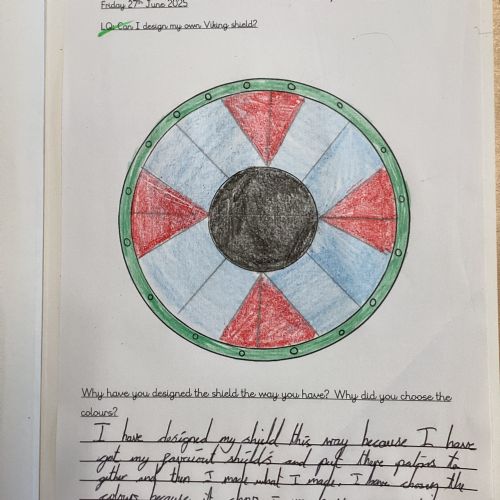 Friday 27th June 2025
LQ: Can I design my own Viking shield?
Why have you designed the shield the way you have? Why did you choose the
colours?
I have designed my shield this way because I have
got my faviriout shields and put there patons to
gether and then I made what I made. I have chosen the
colours because it